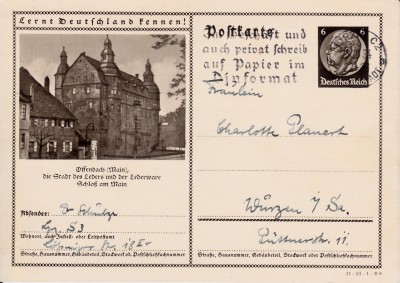 Lernt Deutschland kennen!
Postkarte
und
auch privat schreib
auf Papier im
Dinformat
6 6
Deutsches Reich
Fräulein
Charlotte Planert
Wurzen i/Sa.
Offenbach (Main),
die Stadt des Leders und der Lederware
Schloß am Main
Absender:
Wohnort, auch Zustell- oder Leitpostamt
Straße, Hausnummer, Gebäudeteil, Stockwerk od. Postschließfachnummer
Straße, Hausnummer, Gebäudeteil, Stockwerk oder Postschließfachnummer